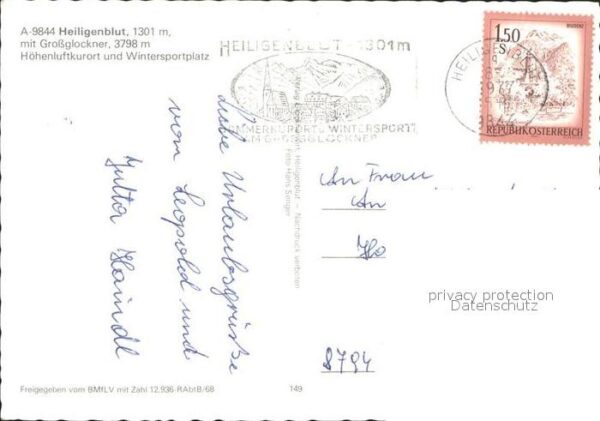 A-9844 Heiligenblut, 1301 m,
mit Großglockner, 3798 m
Höhenluftkurort und Wintersportplatz
HEILIGENBLUT - 1301 m
SOMMERKURORT u WINTERSPORT
AM GROSSGLOCKNER
HEILIGENBLUT
9844
1.50
S
BLUDENZ
REPUBLIK ÖSTERREICH
Liebe Urlaubsgrüße
vom Leopold und
Jutta Haindl
Heiligenblut – Nachdruck verboten
Foto Hans
An Frau
An
Ho
8794
privacy protection
Datenschutz
Freigegeben vom BMfLV mit Zahl 12.936-RAbtB/68
149